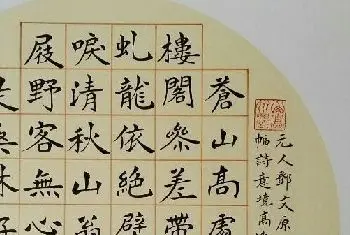 元人鄧文原
帖詩意境高
蒼山高處
樓閣叅差帶
虬龍依絕壁
唳清秋山翁
屐野客無心